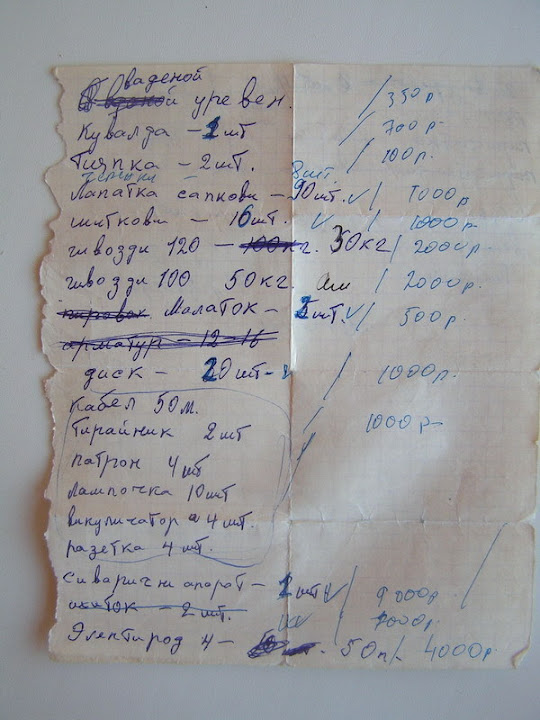 Вваденой
уревен. / 350р
Кувалда - 2шт / 700р.
Тияпка - 2шт. / 100р.
8шт.
Лапатка сапкови - 90шт. √ / 1000р
шиткови - 16шт. √ / 1000р.
гивозди 120 - 100кг. 50кг / 2000р.
гивозди 100 50кг. / 2000р.
Малаток - 2шт. √ / 500р.
арматур - 12-16
диск - 20шт - √ / 1000р.
Кабел 50м.
Тирайник 2шт / 1000р
патрон 4шт
лампочка 10шт
викуличатор 4шт.
разетка 4шт.
Сиварични апарот - 1шт √ / 9000р
2шт. 7000р.
Электирод 4 - 50п/- 4000р.